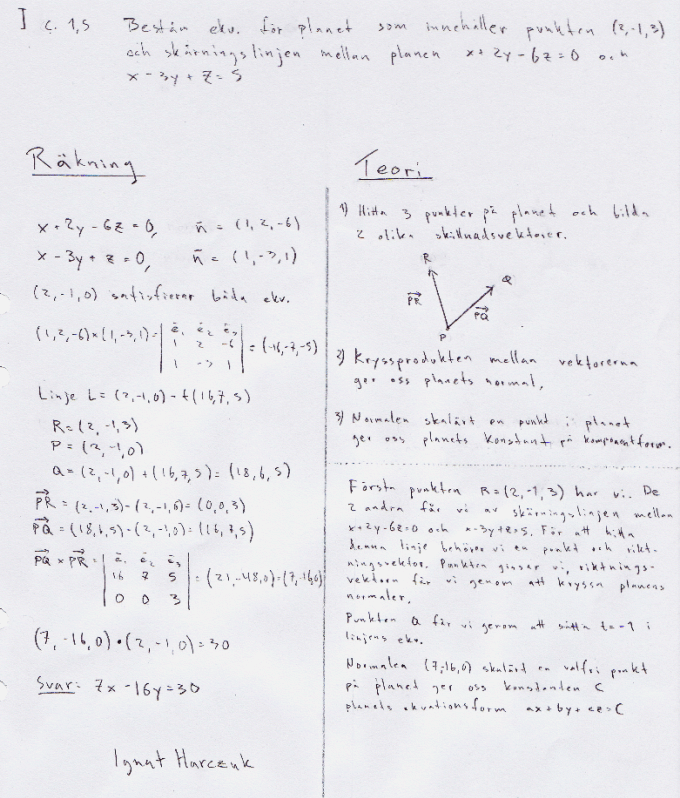 I ç. 1,5 Bestäm ekv. för planet som innehåller punkten (2,-1,3)
och skärningslinjen mellan planen x+2y-6z=0 och
x-3y+z=5
Räkning
x+2y-6z=0, n̄ = (1,2,-6)
x-3y+z=0, n̄ = (1,-3,1)
(2,-1,0) satisfierar båda ekv.
(1,2,-6)×(1,-3,1)= | ē₁ ē₂ ē₃ |
| 1 2 -6 | = (-16,-7,-5)
| 1 -3 1 |
Linje L=(2,-1,0)-t(16,7,5)
R=(2,-1,3)
P=(2,-1,0)
Q=(2,-1,0)+(16,7,5)=(18,6,5)
PR = (2,-1,3)-(2,-1,0)=(0,0,3)
PQ = (18,6,5)-(2,-1,0)=(16,7,5)
PQ × PR = | ē₁ ē₂ ē₃ |
| 16 7 5 | = (21,-48,0)=(7,-16,0)
| 0 0 3 |
(7,-16,0)•(2,-1,0)=30
Svar: 7x-16y=30
Ignat Harczuk
Teori
1) Hitta 3 punkter på planet och bilda
2 olika skillnadsvektorer.
R
Q
PR
PQ
P
2) Kryssprodukten mellan vektorerna
ger oss planets normal,
3) Normalen skalärt en punkt i planet
ger oss planets konstant på komponentform.
Första punkten R=(2,-1,3) har vi. De
2 andra får vi av skärningslinjen mellan
x+2y-6z=0 och x-3y+z=5. För att hitta
denna linje behöver vi en punkt och rikt-
ningsvektor. Punkten gissar vi, riktnings-
vektorn får vi genom att kryssa planens
normaler.
Punkten Q får vi genom att sätta t=-1 i
linjens ekv.
Normalen (7,-16,0) skalärt en valfri punkt
på planet ger oss konstanten C
planets ekvationsform ax+by+cz=C